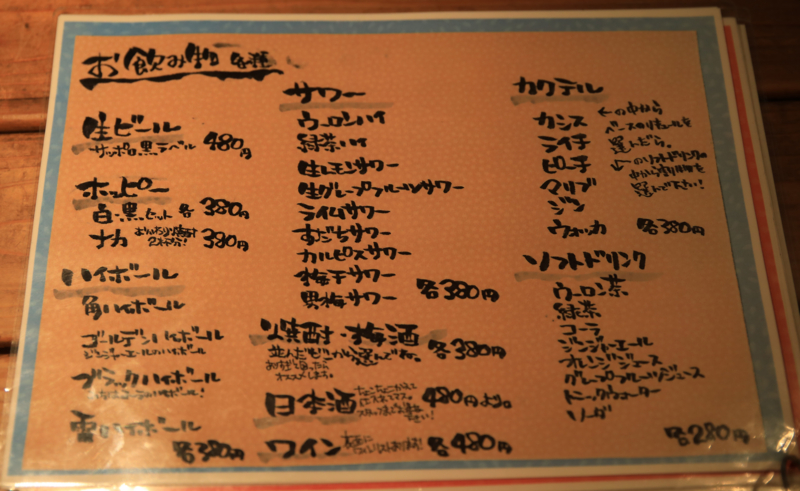 お飲み物 各種
生ビール
サッポロ黒ラベル 480円
ホッピー
白・黒セット 各380円
ナカ 380円
ハイボール
角ハイボール
ゴールデンハイボール
ジンジャーエールハイボール
ブラックハイボール
雪ハイボール
各380円
サワー
ウーロンハイ
緑茶ハイ
生レモンサワー
生グレープフルーツサワー
ライムサワー
すだちサワー
カルピスサワー
梅干サワー
男梅サワー 各380円
焼酎・梅酒 各380円
オススメします。
日本酒 480円より。
ワイン 各480円
カクテル
カシス ←の中から
ライチ 選んだら、
ピーチ ←のソフトドリンクの
マリブ
ジン 選んで下さい!
ウォッカ 各380円
ソフトドリンク
ウーロン茶
緑茶
コーラ
ジンジャーエール
オレンジジュース
グレープフルーツジュース
トニックウォーター
ソーダ
各280円